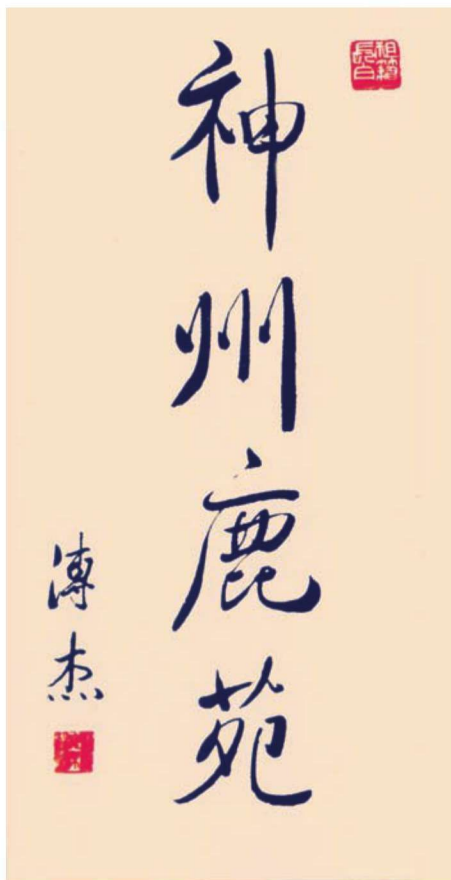 祖籍長白
神州鹿苑
溥杰